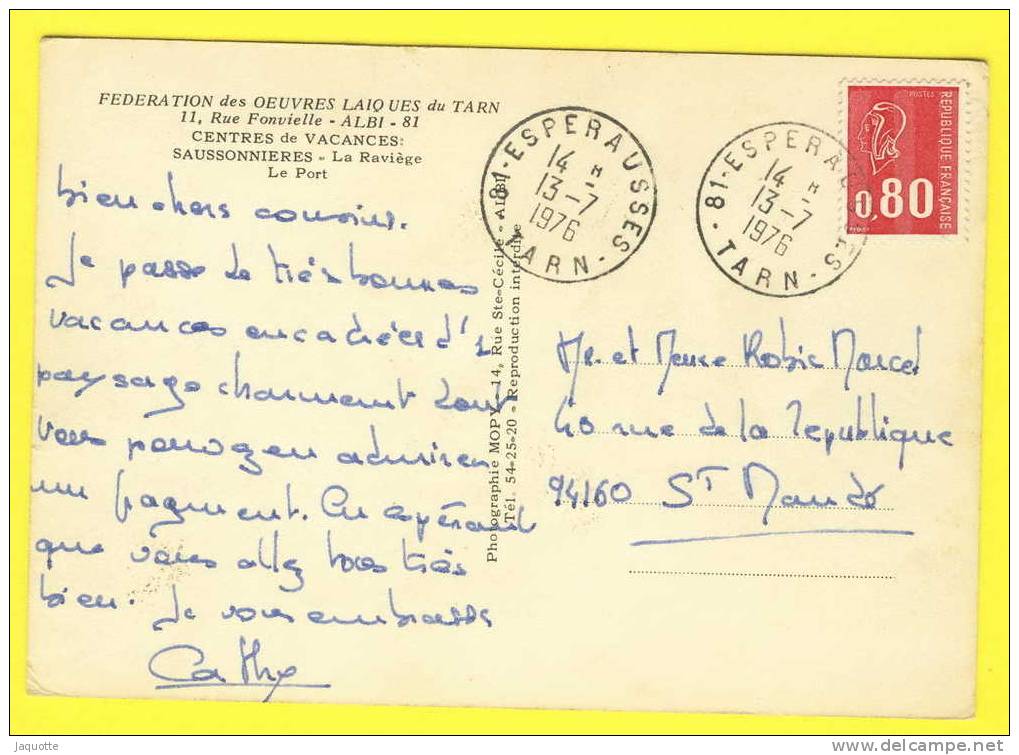 FEDERATION des OEUVRES LAIQUES du TARN
11, Rue Fonvielle - ALBI - 81
CENTRES de VACANCES:
SAUSSONNIERES - La Raviège
Le Port
bien chers cousins.
Je passe de très bonnes
vacances encadrées d'1
paysage charment dont
vous pouvez en admirer
un fragment. En espérant
que vous allez tous très
bien. Je vous embrasse
Cathy
Photographie MOPY - 14, Rue Ste-Cécile - ALBI
Tél. 54-25-20 - Reproduction interdite
81-ESPERAUSSES
14 H
13-7
1976
TARN
81-ESPERAUSSES
14 H
13-7
1976
TARN
POSTES
REPUBLIQUE FRANÇAISE
0,80
Mr et Mme Robic Marcel
40 rue de la République
94160 ST Mandé
Jaquotte
www.delcampe.net